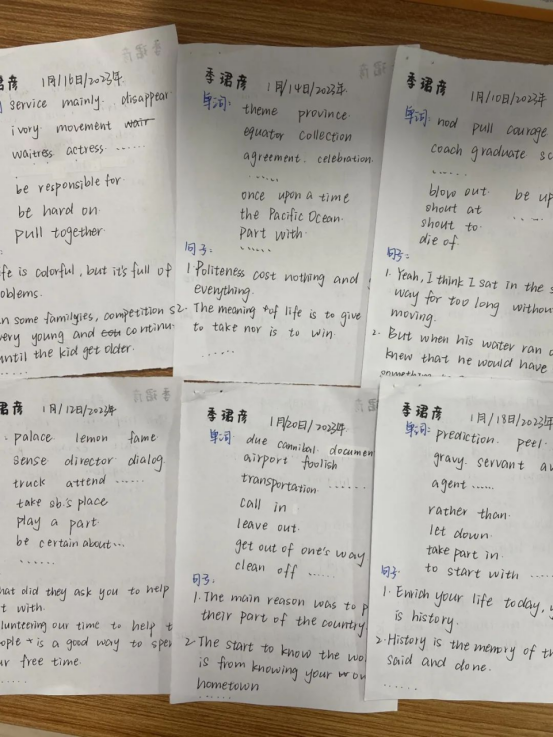 君彦 1月/16日/2023年
service mainly disappear
ivory movement wair
waitress actress ......
be responsible for.
be hard on.
pull together.
life is colorful, but it's full of
oblems.
n some familyies, competition s
very young and continu
until the kid get older.
季珺彦 1月/14日/2023年
单词: theme province
equator collection
agreement. celebration
once upon a time
the Pacific Ocean.
part with.
......
句子:
1 Politeness cost nothing and
everything.
2. The meaning of life is to give
to take nor is to win.
......
季珺彦 1月/10日/2023年
单词: nod pull courage
coach graduate sc
......
blow out. be up
shout at ......
shout to.
die of.
句子:
1. Yeah, I think I sat in the s
way for too long withou
moving.
2. But when his water ran o
knew that he would have
君彦 1月/12日/2023年
palace lemon fame
sense director dialog.
truck attend ......
take sb.'s place
play a part.
be certain about...
......
hat did they ask you to help
t with.
lunteering our time to help t
ople is a good way to spen
ur free time.
......
季珺彦 1月/20日/2023年
单词: due cannibal. documen
airport foolish
transportation ......
call in
leave out.
get out of one's way
clean off ......
句子:
1. The main reason was to p
their part of the country.
2. The start to know the wo
is from knowing your
hometown
......
季珺彦 1月/18日/2023年
单词: prediction. peel.
gravy. servant aw
agent ......
rather than.
let down.
take part in.
to start with ......
句子:
1. Enrich your life today, y
is history.
2. History is the memory of th
said and done.
......